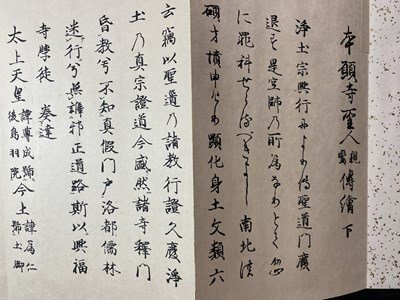 本願寺聖人親鸞傳繪 下
浄土宗興行によりて聖道門廢
退す是空師の所為なりとて忽
に罪科せらるべきよし南北
碩才憤申けり顯化身土文類六
云竊以聖道乃諸教行證久廢浄
土乃真宗證道今盛然諸寺釋門
昏教兮不知真假門戸洛都儒林
迷行兮無辨邪正道路斯以興福
寺學徒 奏達
太上天皇 諱尊成號後鳥羽院 今上 諱為仁號土御